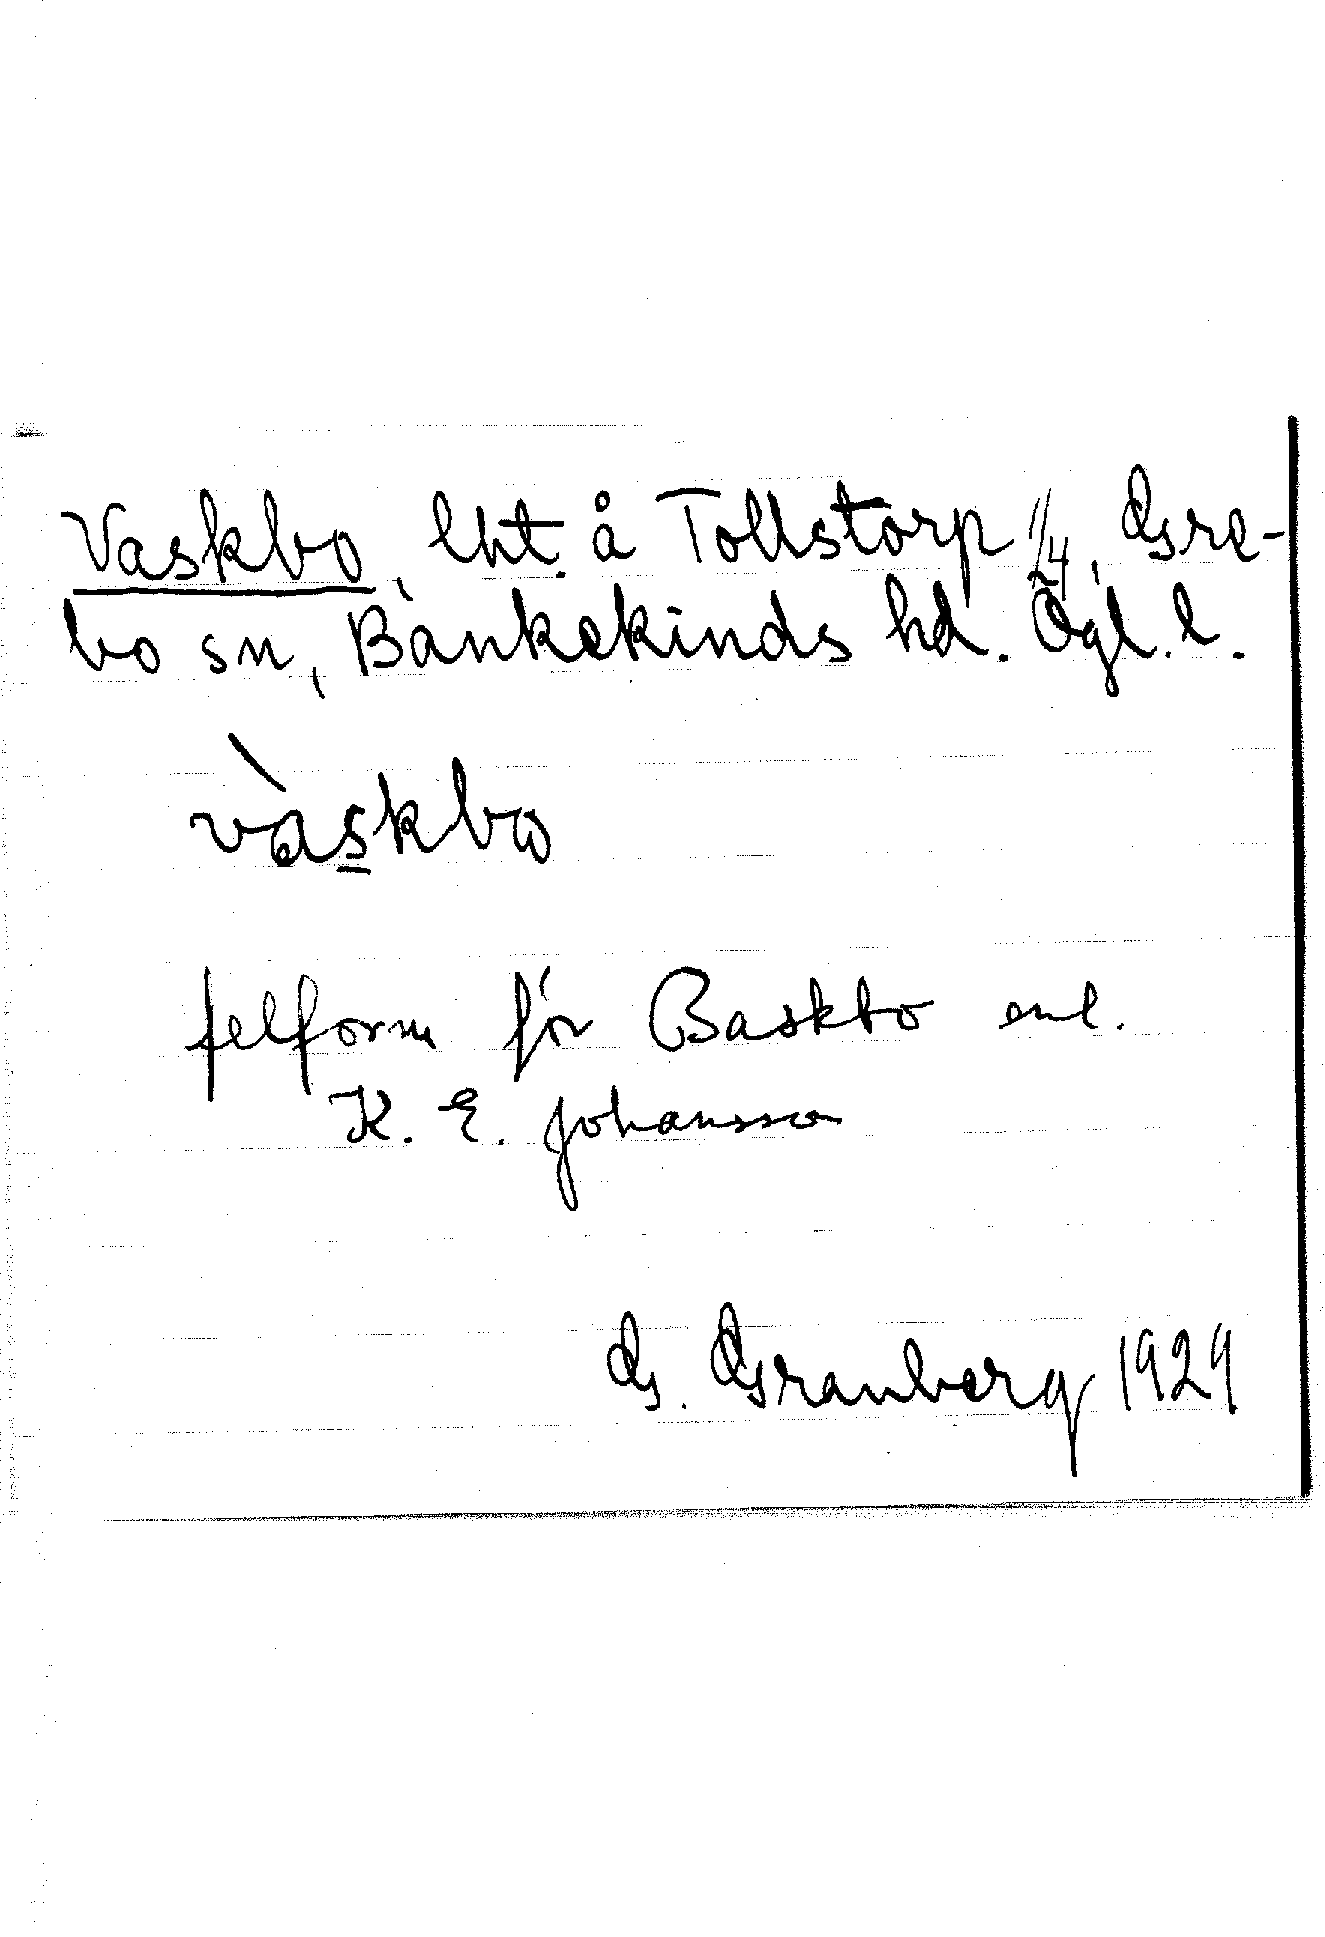 Vaskbo, lht. å Tollstorp 1/24, Gre-
bo sn, Bankekinds hd. Ögl. l.
vàskbo
felform för Baskbo enl.
K. E. Johansson
G. Granberg 1929